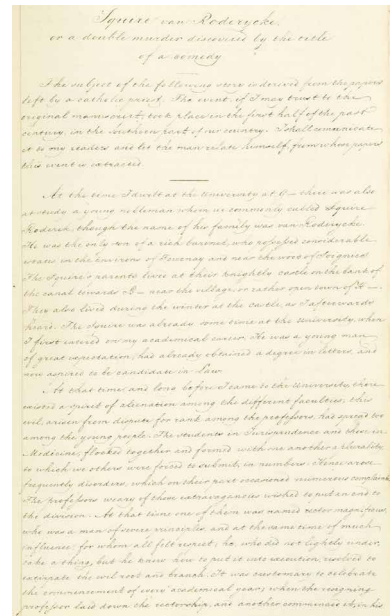 Squire van Roderycke,
or a double murder discovered by the title
of a comedy
The subject of the following story is derived from the papers
left by a catholic priest. The event, if I may trust to the
original manuscript, took place in the first half of the past
century, in the southern part of our country. I shall comunicate
it to my readers and let the man relate himself, from whose papers
this event is extracted.
At the time I dwelt at the University at G— there was also
at study a young nobleman whom we commonly called Squire
Roderick, though the name of his family was van Roderycke.
He was the only son of a rich baronet, who possessed considerable
estates in the environs of Tournay and near the wood of Soignies.
The Squire's parents lived at their knightly castle on the bank of
the canal towards B— near the village, or rather open town of H—.
They also lived during the winter at the castle, as I afterwards
heard. The Squire was already some time at the University, when
I first entered on my academical career. He was a young man
of great expectation, had already obtained a degree in letters, and
now aspired to be candidate in Law.
At that time and long before I came to the University, there
existed a spirit of alienation among the different faculties; this
evil, arisen from dispute for rank among the professors, had spread too
among the young people. The students in Jurisprudence and those in
Medicine, flocked together and formed with one another a plurality
to which we others were forced to submit, in numbers. Hence arose
frequently disorders, which on their part occasioned numerous complaints.
The professors weary of these extravagancies wished to put an end to
the division. At that time one of them was named rector magnificus,
who was a man of severe principles, and at the same time of much
influence; for whom all felt respect; he who did not lightly under-
take a thing, but he knew how to put it into execution, resolved to
extirpate the evil root and branch. It was customary to celebrate
the commencement of every academical year, when the resigning
professor laid down the rectorship, and another commenced